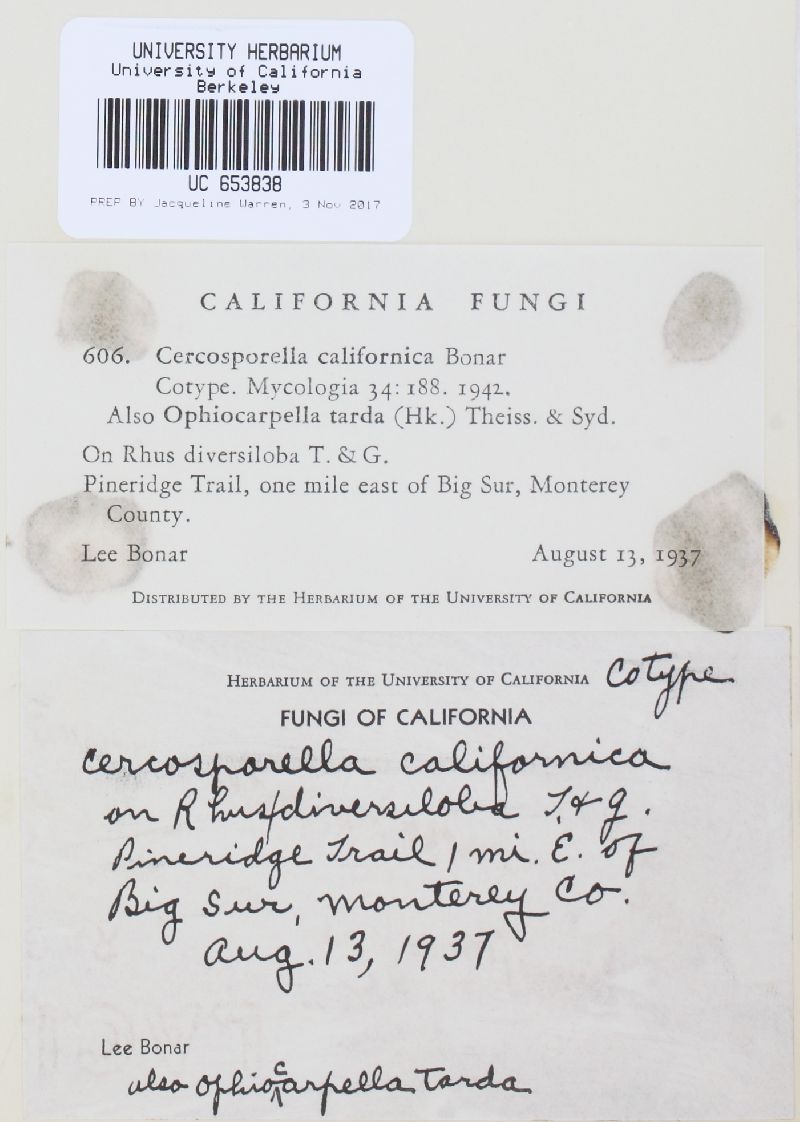 UNIVERSITY HERBARIUM
University of California
Berkeley
UC 653838
PREP BY Jacqueline Warren, 3 Nov 2017
CALIFORNIA FUNGI
606. Cercosporella californica Bonar
Cotype. Mycologia 34: 188. 1942.
Also Ophiocarpella tarda (Hk.) Theiss. & Syd.
On Rhus diversiloba T. & G.
Pineridge Trail, one mile east of Big Sur, Monterey
County.
Lee Bonar August 13, 1937
DISTRIBUTED BY THE HERBARIUM OF THE UNIVERSITY OF CALIFORNIA
HERBARIUM OF THE UNIVERSITY OF CALIFORNIA Cotype
FUNGI OF CALIFORNIA
Cercosporella californica
on Rhus/diversiloba T. & G.
Pineridge Trail 1 mi. E. of
Big Sur, Monterey Co.
Aug. 13, 1937
Lee Bonar
also Ophiocarpella tarda